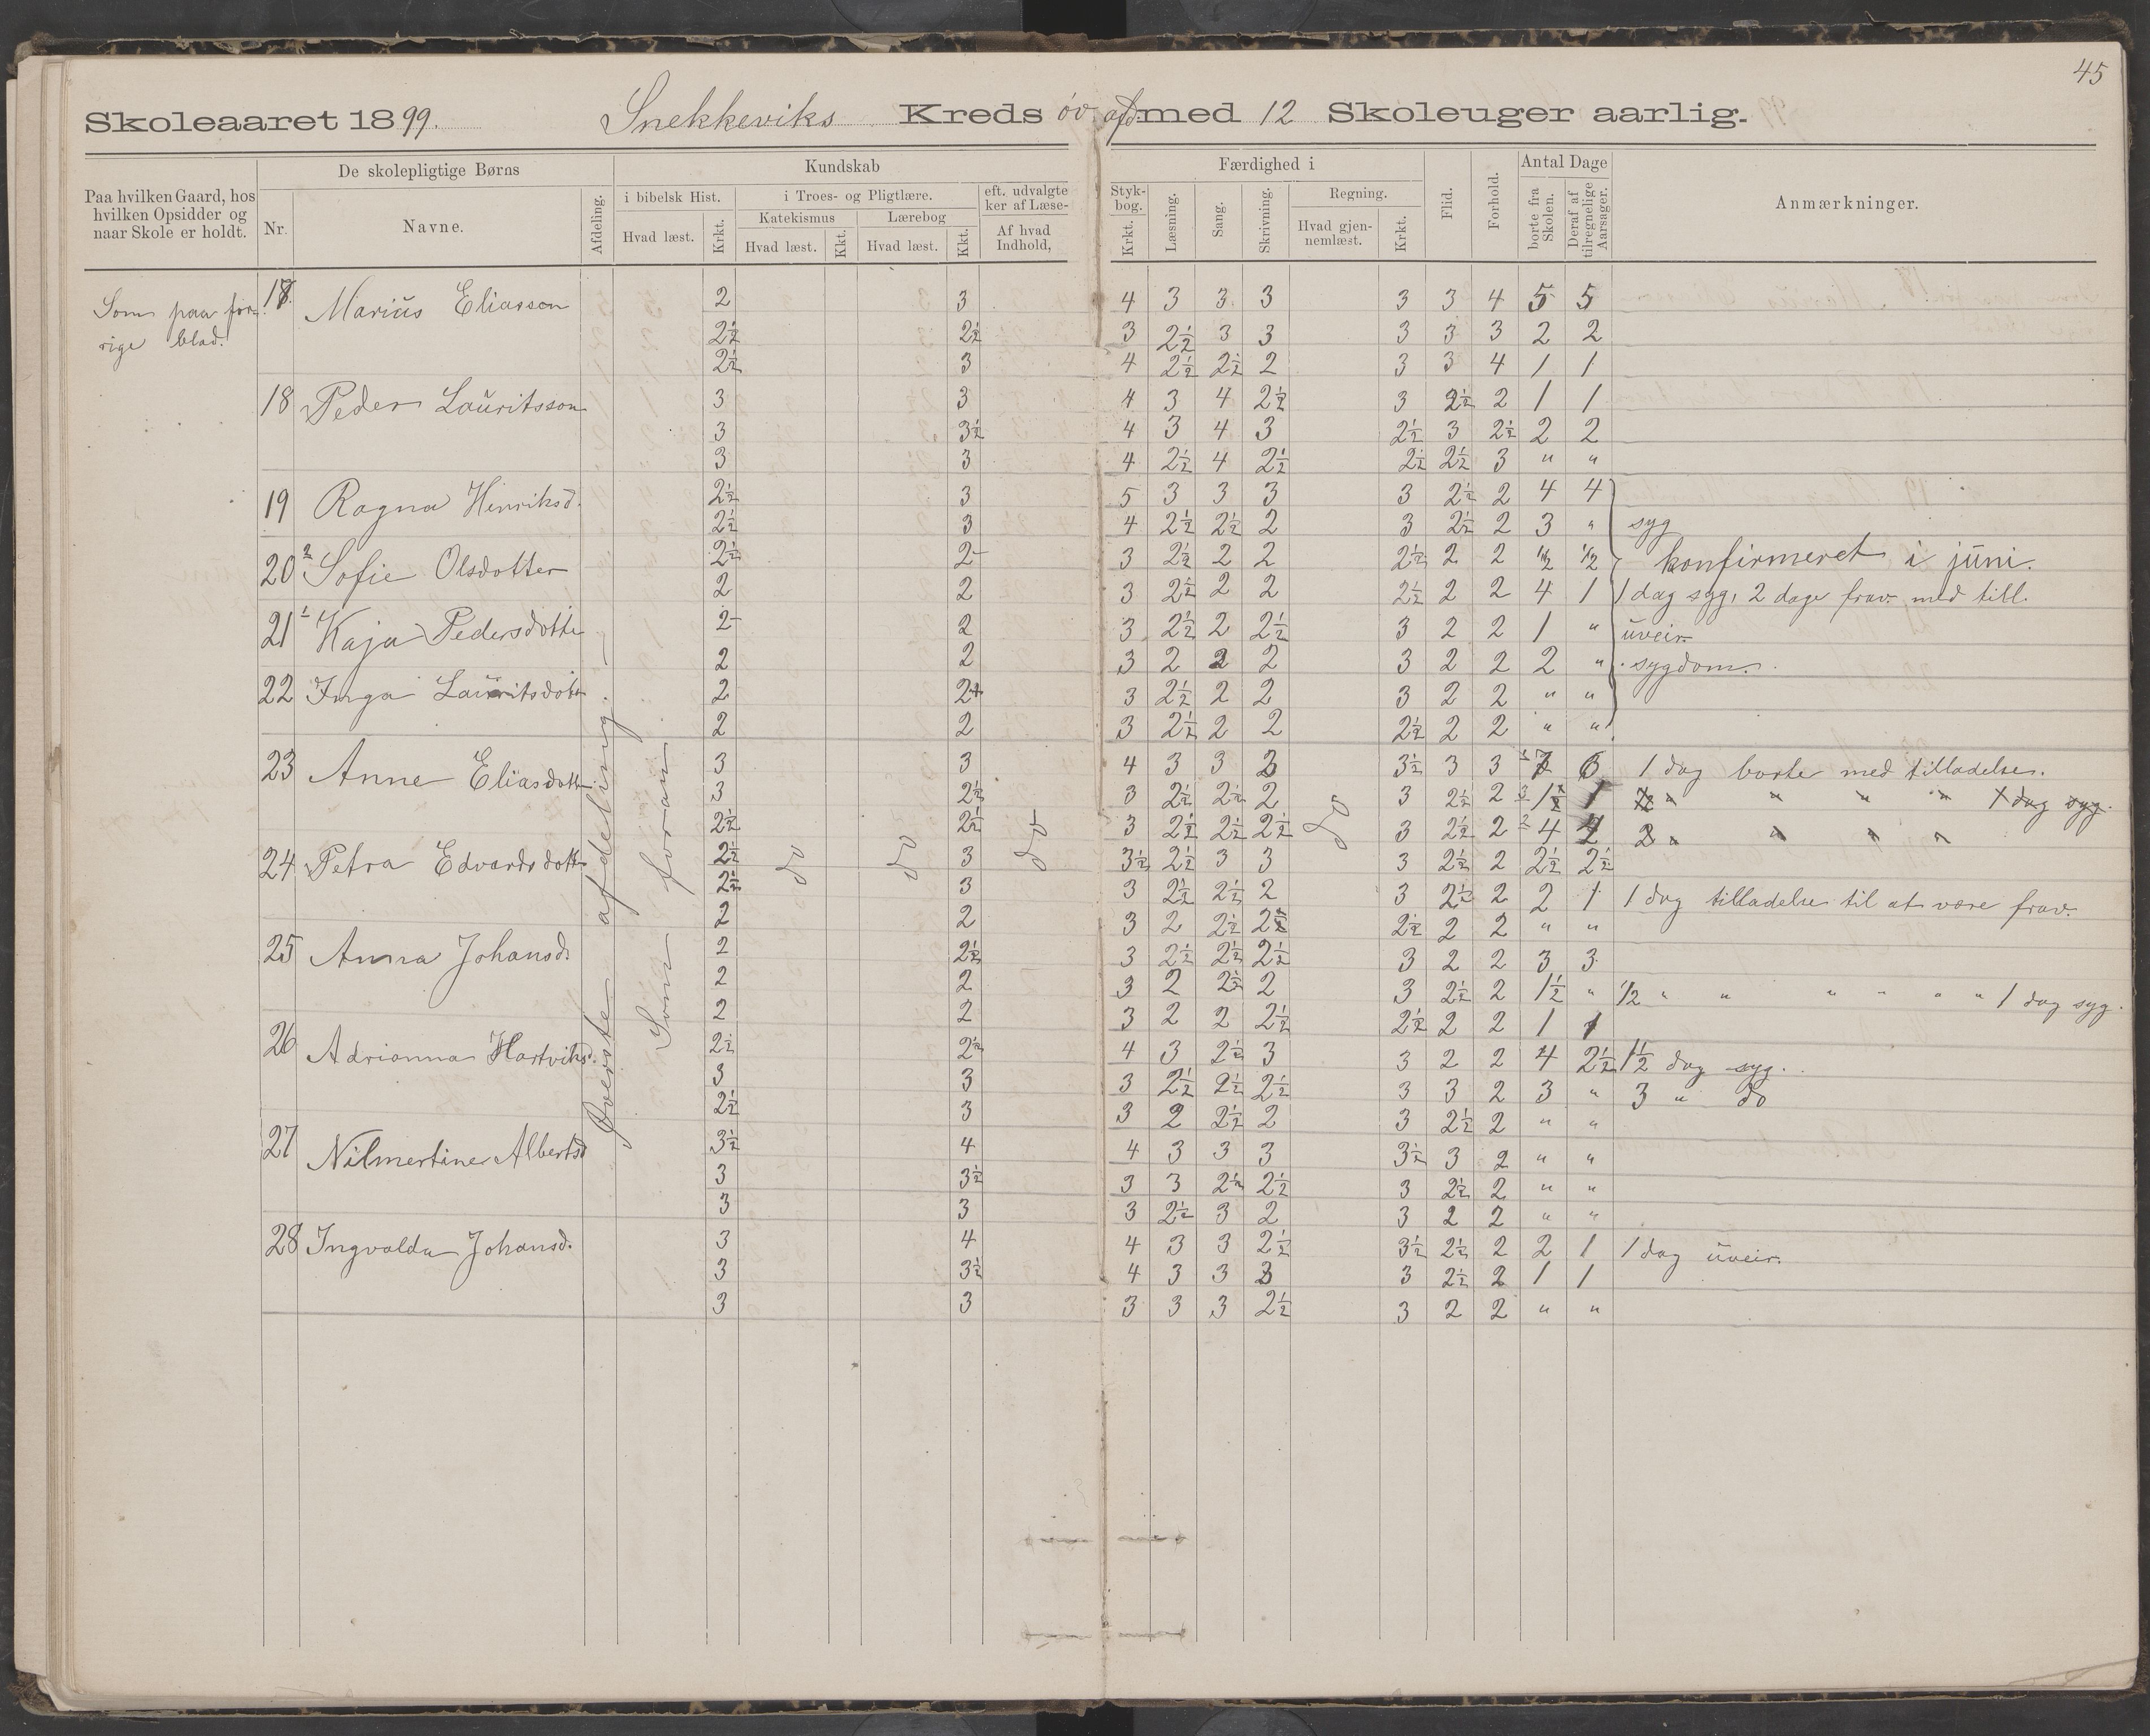 45
Skoleaaret 1899. Snekkeviks Kreds øv. afd. med 12 Skoleuger aarlig.
Paa hvilken Gaard, hos hvilken Opsidder og naar Skole er holdt.
De skolepligtige Børns
Nr. Navne. Afdeling.
Kundskab
i bibelsk Hist. Hvad læst. Krkt.
i Troes- og Pligtlære.
Katekismus Hvad læst. Kkt.
Lærebog Hvad læst. Kkt.
eft. udvalgte Styk-
ker af Læse- bog.
Af hvad Indhold, Krkt.
Færdighed i
Læsning. Sang. Skrivning.
Regning. Hvad gjen-
nemlæst. Krkt.
Flid. Forhold.
Antal Dage
borte fra Skolen. Deraf af tilregnelige Aarsager.
Anmærkninger.
Som paa for-
rige blad.
Øverste afdeling.
Som foran
do do do do
17. Marius Eliasson 2 3 4 3 3 3 3 3 4 5 5
2½ 2½ 3 2½ 3 3 3 3 3 2 2
2½ 3 4 2½ 2½ 2 3 3 4 1 1
18 Peder Lauritsson 3 3 4 3 4 2½ 3 2½ 2 1 1
3 3½ 4 3 4 3 2½ 3 2½ 2 2
3 3 4 2½ 4 2½ 2½ 2½ 3 " "
19 Ragna Henriksd. 2½ 3 5 3 3 3 3 2½ 2 4 4
2½ 3 4 2½ 2½ 2 3 2½ 2 3 " syg
20 Sofie Olsdotter 2½ 2- 3 2½ 2 2 2½ 2 2 1½ ½ konfirmeret i juni.
2 2 3 2½ 2 2 2½ 2 2 4 1 1 dag syg, 2 dage frav. med till.
21 Kaja Pedersdotte 2- 2 3 2½ 2 2½ 3 2 2 1 " uveir.
2 2 3 2 2 2 3 2 2 2 " sygdom.
22 Inga Lauritsdott 2 2+ 3 2½ 2 2 3 2 2 " "
2 2 3 2½ 2 2 2½ 2 2 " "
23 Anne Eliasdotte 3 3 4 3 3 3 3½ 3 3 7 6 1 dag borte med tilladelse.
3 2½ 3 2½ 2½ 2 3 2½ 2 1½ 1 ½ " " " " 1 dag syg.
2½ 2½ 3 2½ 2½ 2½ 3 2½ 2 4 2 2 " " " "
24 Petra Edvardsdott 2½ 3 3½ 2½ 3 3 3 2½ 2 2½ 2½
2½ 3 3 2½ 2½ 2 3 2½ 2 2 1 1 dag tilladelse til at være frav.
2 2 3 2 2½ 2½ 2½ 2 2 " "
25 Anna Johansd. 2 2½ 3 2½ 2½ 2½ 3 2 2 3 3
2 2 3 2 2½ 2 3 2½ 2 1½ " ½ " " " " " " 1 dag syg.
2 2 3 2 2 2½ 2½ 2 2 1 1
26 Adrianna Hartviksd. 2½ 2½ 4 3 2½ 3 3 2 2 4 2½ 1½ dag syg.
3 3 3 2½ 2½ 2½ 3 3 2 3 " 3 " do
2½ 3 3 2 2½ 2 3 2½ 2 " "
27 Nilmertine Albertsd 3½ 4 4 3 3 3 3½ 3 2 " "
3 3½ 3 3 2½ 2½ 3 2½ 2 " "
3 3 3 2½ 3 2 3 2 2 " "
28 Ingvalda Johansd. 3 4 4 3 3 2½ 3½ 2½ 2 2 1 1 dag uveir.
3 3½ 4 3 3 3 3 2½ 2 1 1
3 3 3 3 3 2½ 3 2 2 " "